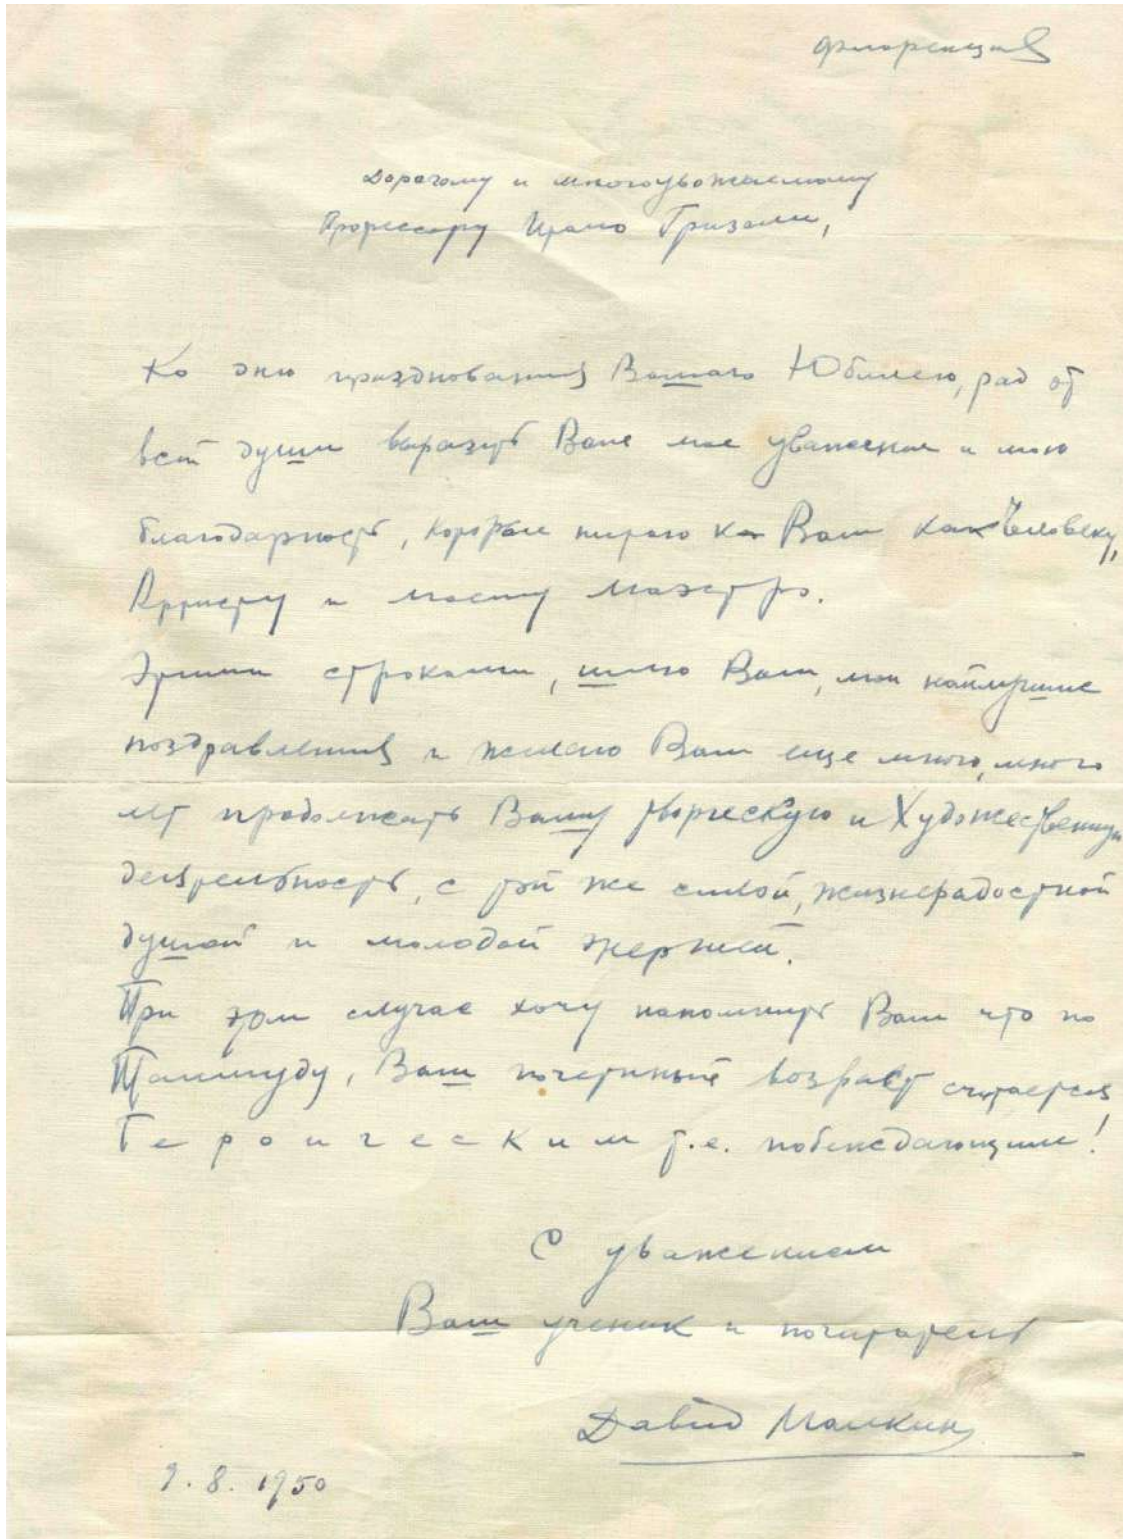 Флоренция
Дорогому и многоуважаемому
Профессору Ирано Гризали,
Ко дню празднования Вашего Юбилею, рад от
всей души выразить Вам мое уважение и мою
благодарность, которые питаю к Вам как Человеку,
Артисту и моему маэстро.
Этими строками, шлю Вам, мои найлучшие
поздравления и желаю Вам еще много, много
лет продолжать Вашу творческую и Художественную
деятельность, с той же силой, жизнерадостной
душой и молодой энергией.
При этом случае хочу напомнить Вам что по
Талмуду, Ваш почетный возраст считается
Героическим т.е. побеждающим!
С уважением
Ваш ученик и почитатель
Давид Малкин
9.8.1950